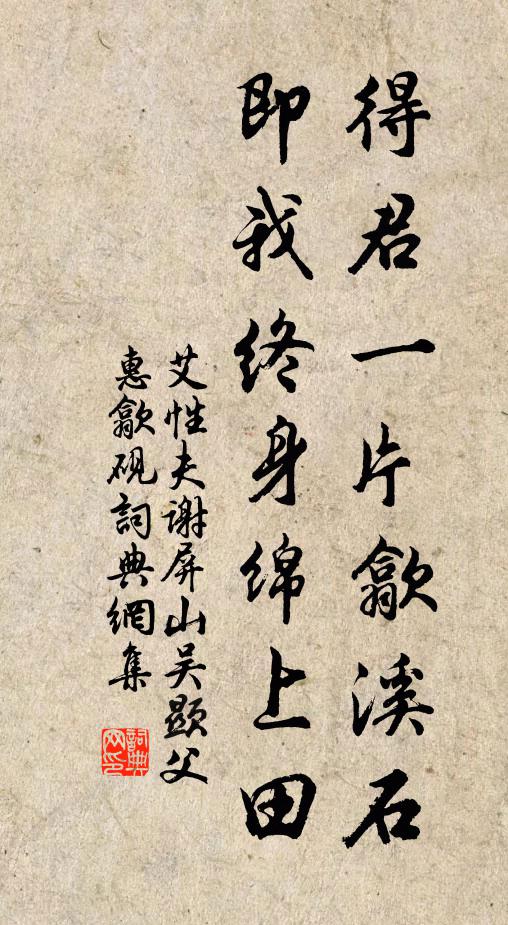 得君一片歙溪石
即我终身绵上田
艾性夫谢屏山吴顕父
惠歙砚詞典網集
詞典網印